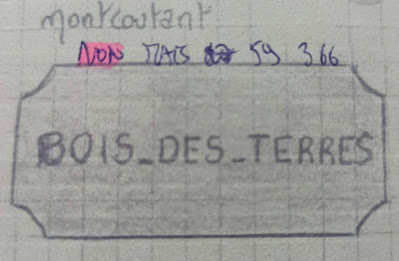 montcoutant
NON MAIS 59 366
BOIS_DES_TERRES